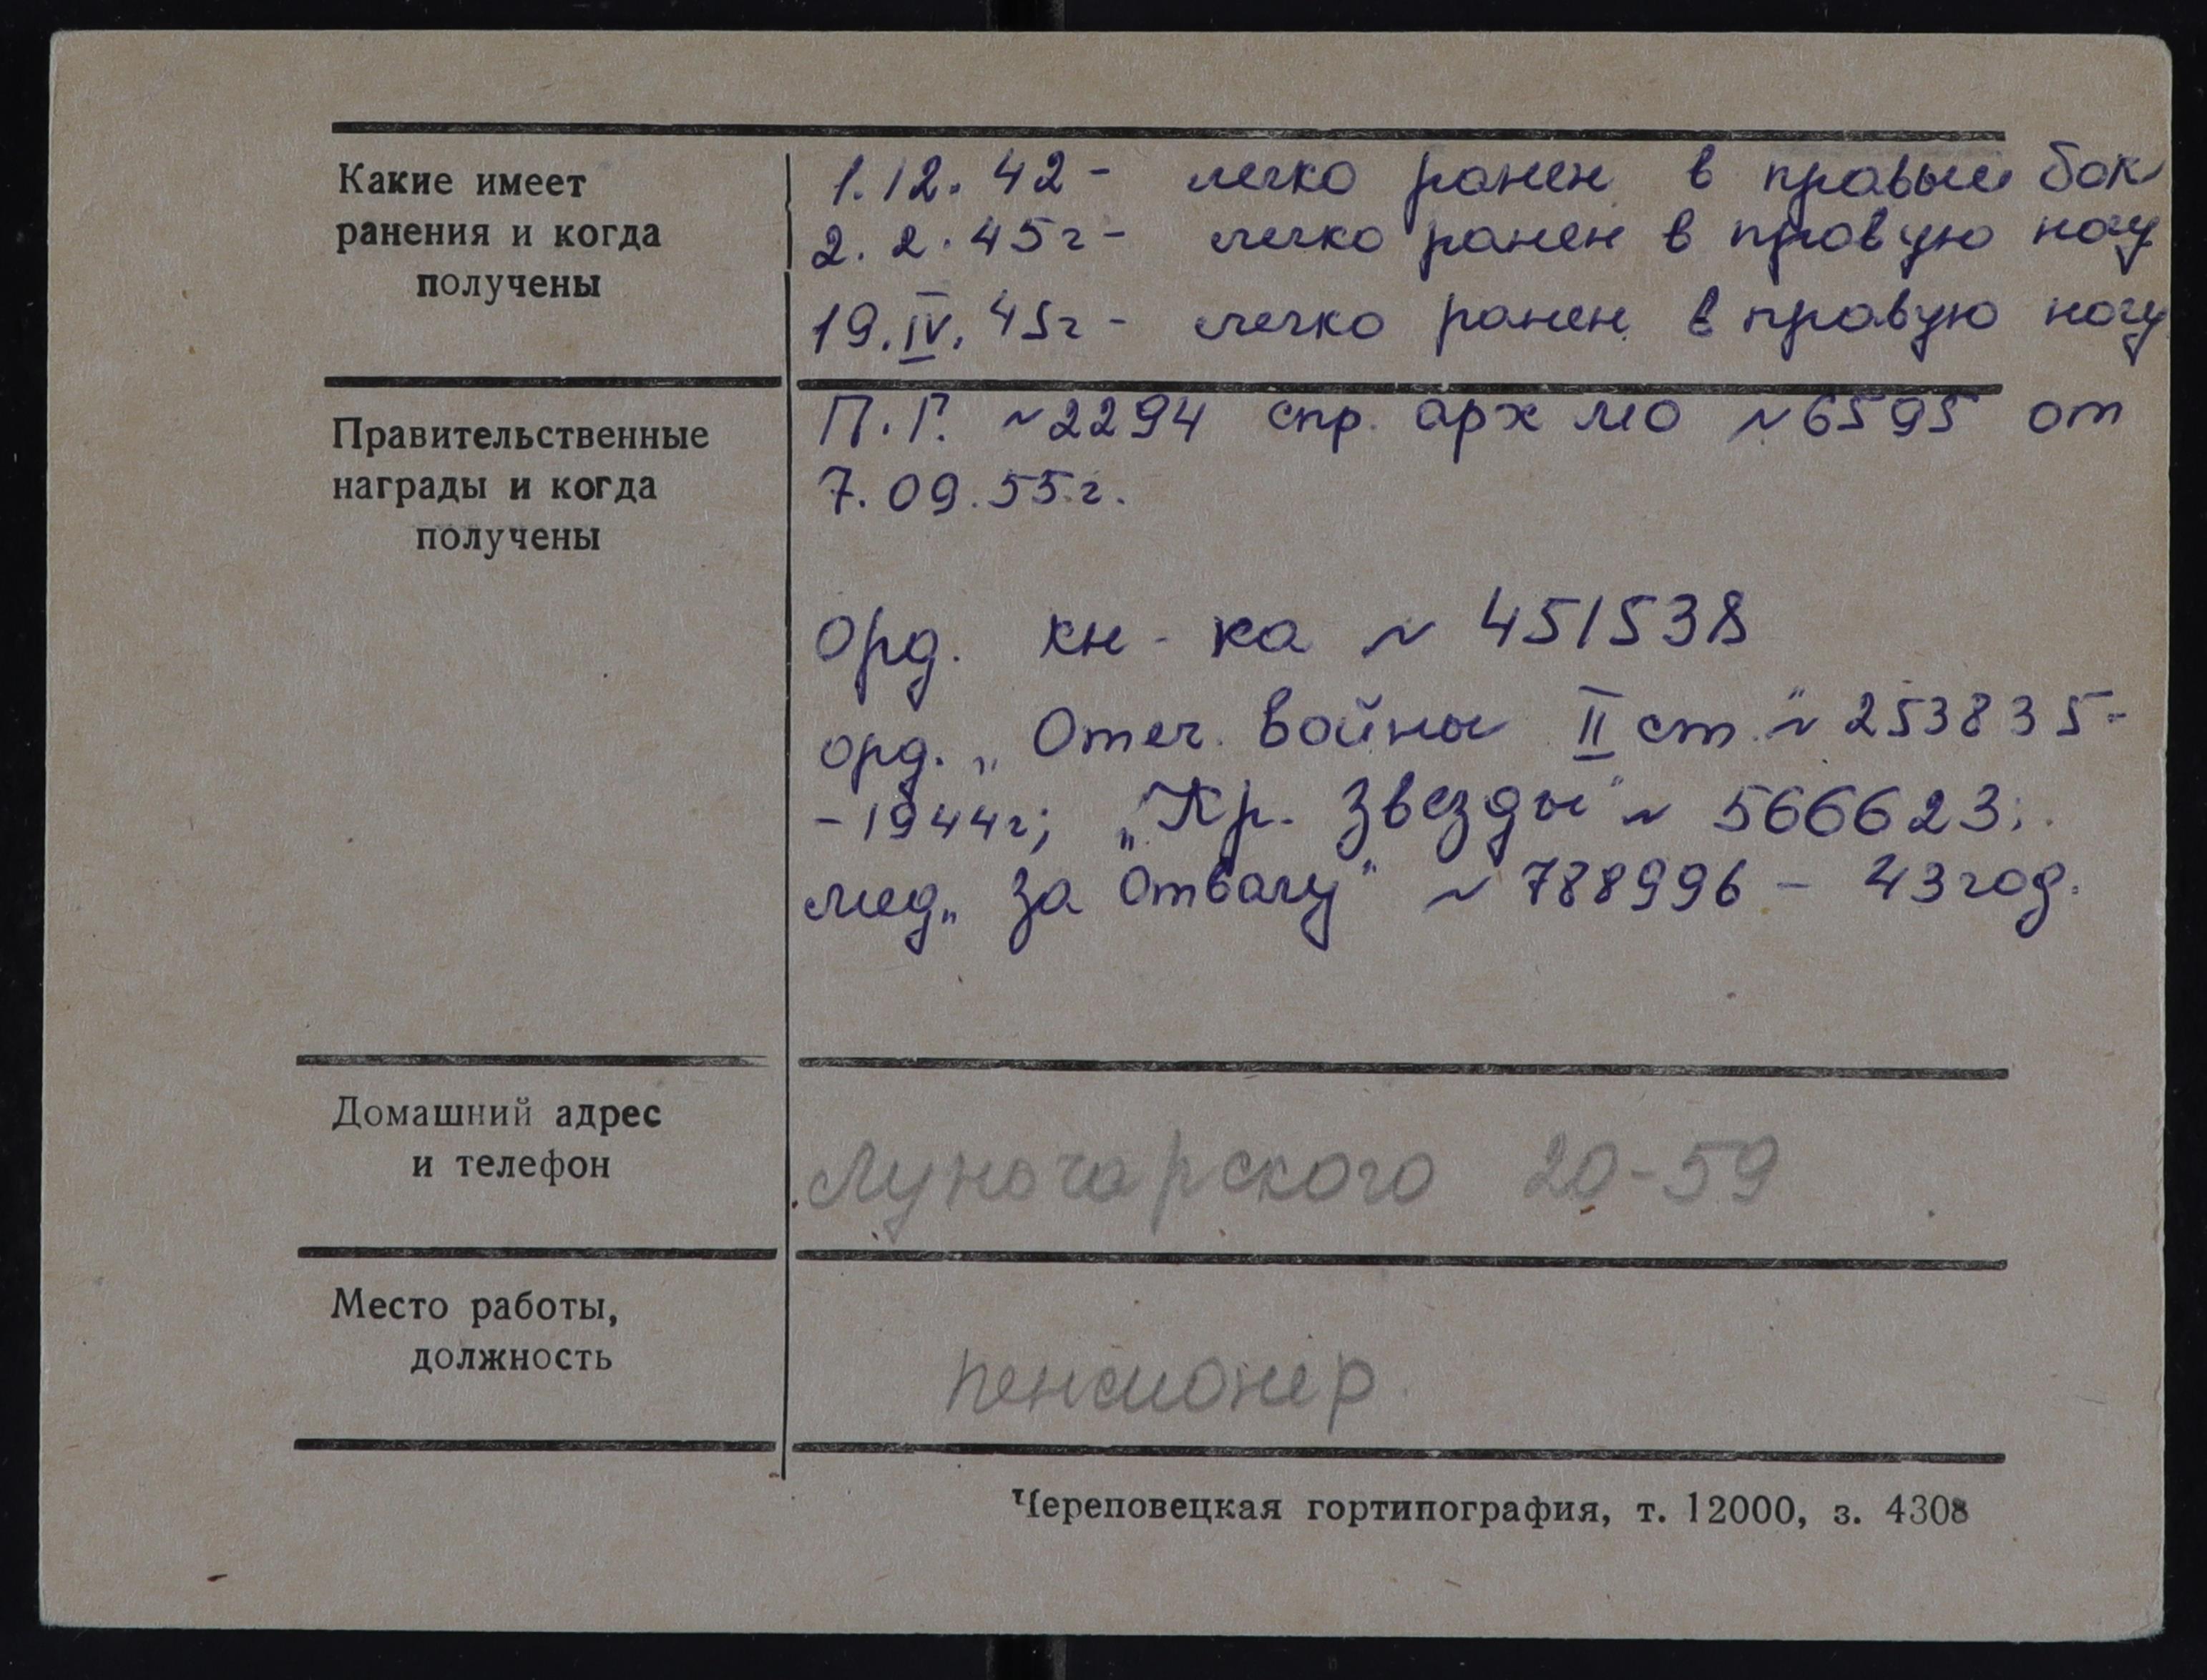 Какие имеет
ранения и когда
получены
1.12.42 - легко ранен в правый бок
2.2.45г - легко ранен в правую ногу
19.IV.45г - легко ранен в правую ногу
Правительственные
награды и когда
получены
П.Г. №2294 спр. арх МО №6595 от
7.09.55г.
Орд. кн-ка № 451538
орд. „Отеч. войны II ст." № 253835-
-1944г; „Кр. Звезды" № 566623;.
мед„ За Отвагу" № 788996 - 43год.
Домашний адрес
и телефон
Луначарского 20-59
Место работы,
должность
пенсионер.
Череповецкая гортипография, т. 12000, з. 4308